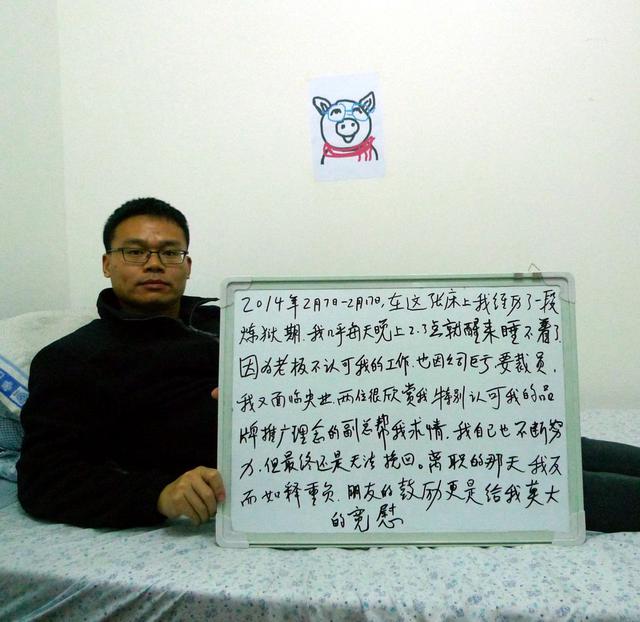 2014年2月7日-2月17日,在这张床上我经历了一段
炼狱期.我几乎每天晚上2.3点就醒来睡不着了.
因为老板不认可我的工作.也因公司巨亏要裁员,
我又面临失业.两位很欣赏我,特别认可我的品
牌推广理念的副总帮我求情.我自己也不断努
力.但最终还是无法挽回。离职的那天,我反
而如释重负.朋友的鼓励更是给我莫大
的宽慰